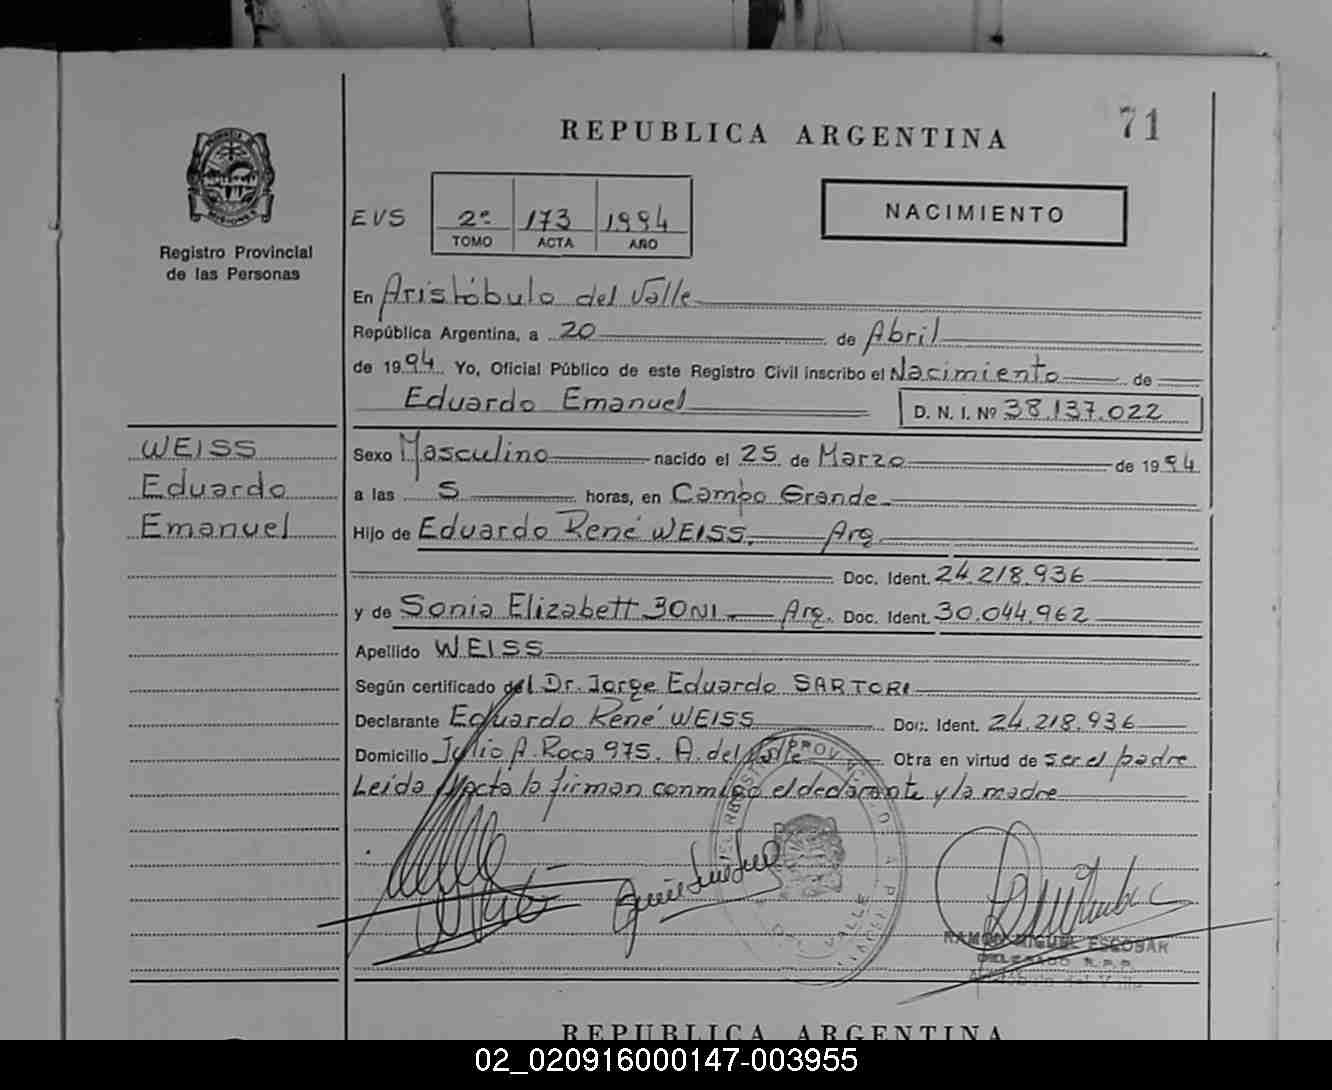 REPUBLICA ARGENTINA
71
MISIONES
Registro Provincial
de las Personas
EVS
2º 173 1994
TOMO ACTA AÑO
NACIMIENTO
En Aristóbulo del Valle
República Argentina, a 20 de Abril
de 1994 Yo, Oficial Público de este Registro Civil inscribo el Nacimiento de
Eduardo Emanuel D. N. I. Nº 38.137.022
WEISS
Eduardo
Emanuel
Sexo Masculino nacido el 25 de Marzo de 1994
a las 5 horas, en Campo Grande
Hijo de Eduardo René WEISS. Arg.
Doc. Ident. 24.218.936
y de Sonia Elizabett BONI. Arg. Doc. Ident. 30.044.962
Apellido WEISS
Según certificado del Dr. Jorge Eduardo SARTORI
Declarante Eduardo René WEISS Doc. Ident. 24.218.936
Domicilio Julio A. Roca 975. A. del Valle Obra en virtud de ser el padre
Leída el acta la firman conmigo el declarante y la madre
RAMON MIGUEL ESCOBAR
DELEGADO R.P.P.
Aristóbulo del Valle
REPUBLICA ARGENTINA
02_020916000147-003955